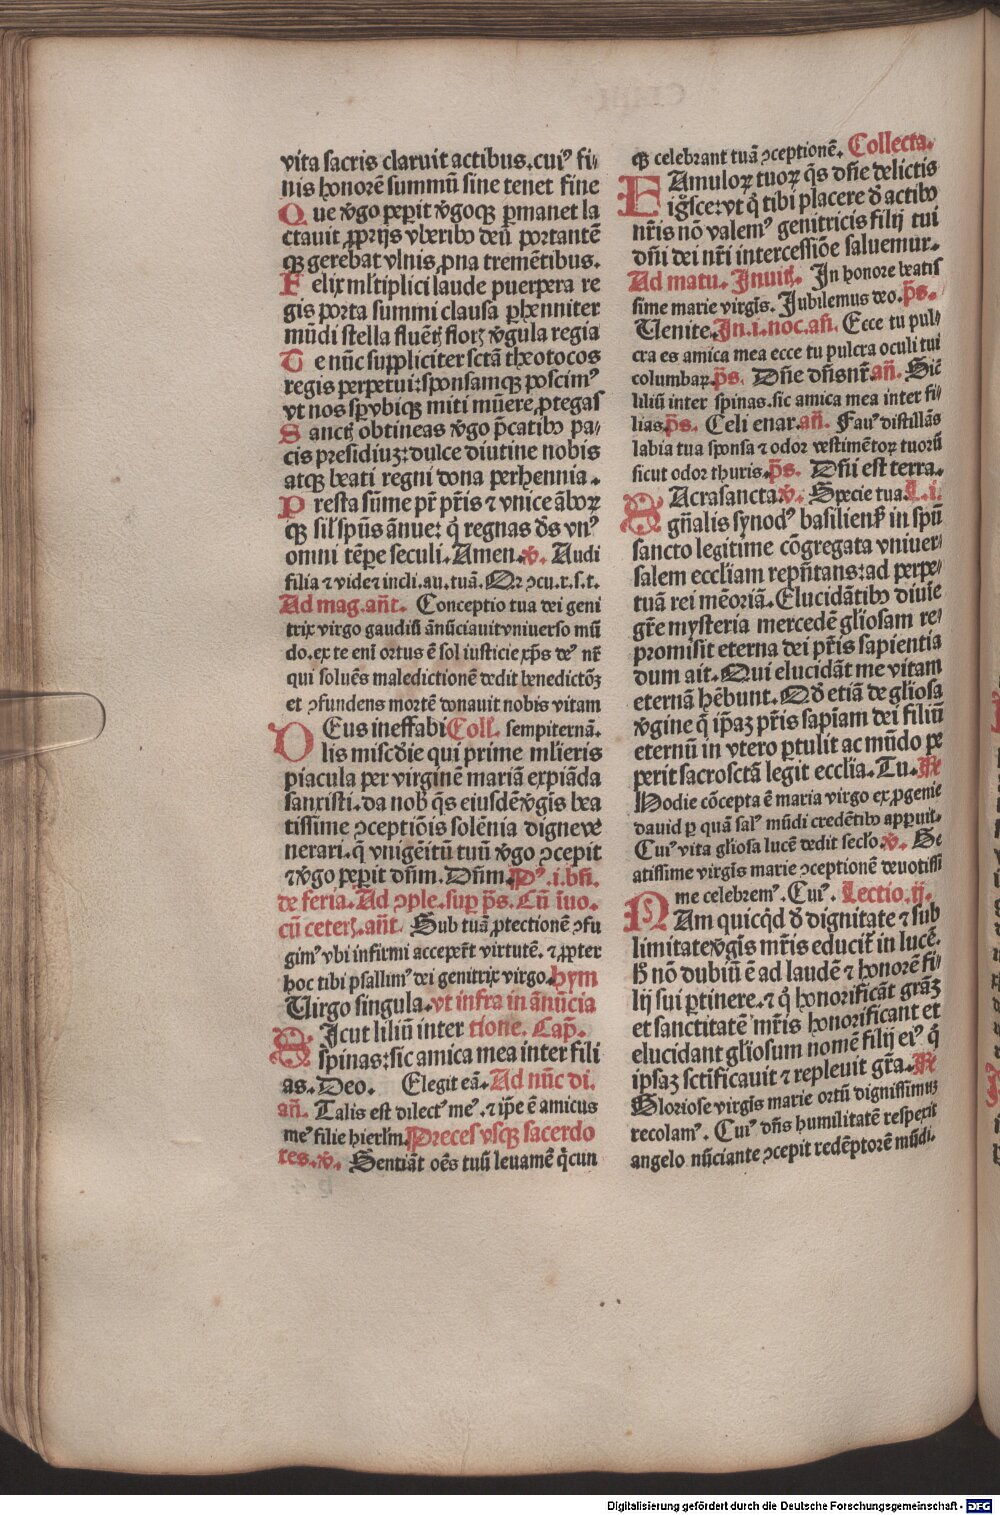 vita sacris claruit actibus.cuiꝰ fi-
nis honorē summū sine tenet fine
Que v̄go peꝑit v̄goqꝫ ꝑmanet la
ctauit ꝓprijs vberibꝰ deū portantē
qꝫ gerebat vlnis ꝓna tremētibus.
Felix ml̄tiplici laude puerpera re
gis porta summi clausa ꝑhenniter
mūdi stella fluētꝭ florꝭ v̄gula regia
Te nūc suppliciter sctā theotocos
regis perpetui:sponsamqꝫ poscimꝰ
vt nos sꝑ vbiqꝫ miti mūere ꝓtegas
Sanctꝭ obtineas v̄go p̄catibꝰ pa-
cis presidiuꝫ:dulce diutine nobis
atqꝫ beati regni dona perhennia.
Presta sūme pr̄ pr̄is ⁊ vnice ābꝰꝝ
qꝫ sil̄ sp̄us ānue: q̄ regnas d̄s vnꝰ
omni tēꝑe seculi.Amen.v̄. Audi
filia ⁊ vide⁊ incli.au.tuā.Oꝛ ꝯcu.r.s.t.
Ad mag.añt. Conceptio tua dei geni
trix virgo gaudiū ānūciauit vniuerso mū
do.ex te eni ortus ē sol iusticie xp̄s deꝰ nr̄
qui soluēs maledictionē dedit benedictōꝫ
et ꝯfundens mortē donauit nobis vitam
DEus ineffabi Coll. sempiternā.
lis mis̄cdie qui prime ml̄ieris
piacula per virginē mariā expiāda
sanxisti.da nob̄ q̄s eiusdē v̄gis bea
tissime ꝯceptiōis solēnia digne ve
nerari.q̄ vnigēitū tuū v̄go ꝯcepit
⁊ v̄go peꝑit dn̄m.Dn̄m.Pꝰ.i.bn̄.
de feria.Ad ꝯple.suꝑ p̄s.Cū īuo.
cū ceterꝭ.añt. Sub tuā ꝓtectionē ꝯfu
gimꝰ vbi infirmi acceper̄t virtutē.⁊ ꝓpter
hoc tibi psallimꝰ dei genitrix virgo.hym
Virgo singula.vt infra in ānūcia
SIcut liliū inter tione. Cap̄.
spinas:sic amica mea inter fili
as.Deo. Elegit eā.Ad nūc di.
añ. Talis est dilectꝰ meꝰ.⁊ ip̄e ē amicus
meꝰ filie hierl̄m.Preces vsqꝫ sacerdo
tes.v̄. Sentiāt oēs tuū leuamē q̄cun
qꝫ celebrant tuā ꝯceptionē. Collecta.
FAmuloꝝ tuoꝝ q̄s dn̄e delictis
ign̄sce:vt q̄ tibi placere d̄ actibꝰ
nr̄is nō valemꝰ genitricis filij tui
dn̄i dei nr̄i intercessiōe saluemur.
Ad matu. Inuitꝭ. In honore beatis
sime marie virgīs. Jubilemus deo.p̄s.
Venite.In.i.noc.añ. Ecce tu pul-
cra es amica mea ecce tu pulcra oculi tui
columbaꝝ.p̄s. Dn̄e dn̄snr̄.añ. Sic̄
liliū inter spinas.sic amica mea inter fi-
lias.p̄s. Celi enar.añ. Fauꝰ distillās
labia tua sponsa ⁊ odor vestimētoꝝ tuorū
sicut odor thuris.p̄s. Dn̄i est terra.
SAcrasancta.v̄. Specie tua.L.i.
gn̄alis synodꝰ basilienẜ in sp̄u
sancto legitime cōgregata vniuer-
salem eccl̄iam repn̄tans:ad perpe-
tuā rei mēoriā.Elucidātibꝰ diuīe
gr̄e mysteria mercedē gl̄iosam re-
promisit eterna dei pr̄is sapientia
dum ait.Qui elucidāt me vitam
eternā hēbunt.Qd̄ etiā de gl̄iosa
v̄gine q̄ ip̄aꝫ pr̄is sap̄iam dei filiū
eternū in vtero ꝑtulit ac mūdo pe
perit sacrosctā legit eccl̄ia.Tu.℞
Hodie cōcepta ē maria virgo ex ꝓgenie
dauid ꝑ quā salꝰ mūdi credētibꝰ apꝑuit.
Cuiꝰ vita gl̄iosa lucē dedit secl̄o.v̄. Be
atissime virgīs marie ꝯceptionē deuotissi
me celebremꝰ.Cuiꝰ. Lectio.ij.
NAm quicq̄d d̄ dignitate ⁊ sub
limitate v̄gis mr̄is educit̄ in lucē.
h̄ nō dubiū ē ad laudē ⁊ honorē fi-
lij sui ꝑtinere.⁊ q̄ honorificāt grāꝫ
et sanctitatē mr̄is honorificant et
elucidant gl̄iosum nomē filij eiꝰ q̄
ipsaꝫ sct̄ificauit ⁊ repleuit gr̄a.℞
Gloriose virgīs marie ortū dignissimuꝫ
recolamꝰ. Cuiꝰ dn̄s humilitatē respexit
angelo nūciante ꝯcepit redēptorē mūdi.
Digitalisierung gefördert durch die Deutsche Forschungsgemeinschaft - DFG